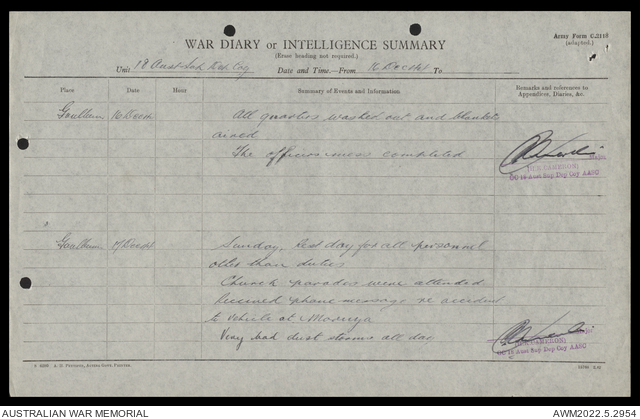 Army Form C.2118
(adapted.)
WAR DIARY or INTELLIGENCE SUMMARY
(Erase heading not required.)
Unit 18 Aust Sup Dep Coy Date and Time—From 16 Dec 44 To
Place Date Hour Summary of Events and Information Remarks and references to Appendices, Diaries, &c.
Goulburn 16 Dec 44 All quarters washed out and blankets
aired
The officers mess completed
Major
(D.R. CAMERON)
OC 18 Aust Sup Dep Coy AASC
Goulburn 17 Dec 44 Sunday. Rest day for all personnel
other than duties
Church parades were attended
Received phone message re accident
to vehicle at Moruya
Very bad dust storms all day
Major
CAMERON)
OC 18 Aust Sup Dep Coy AASC
AUSTRALIAN WAR MEMORIAL
AWM2022.5.2954